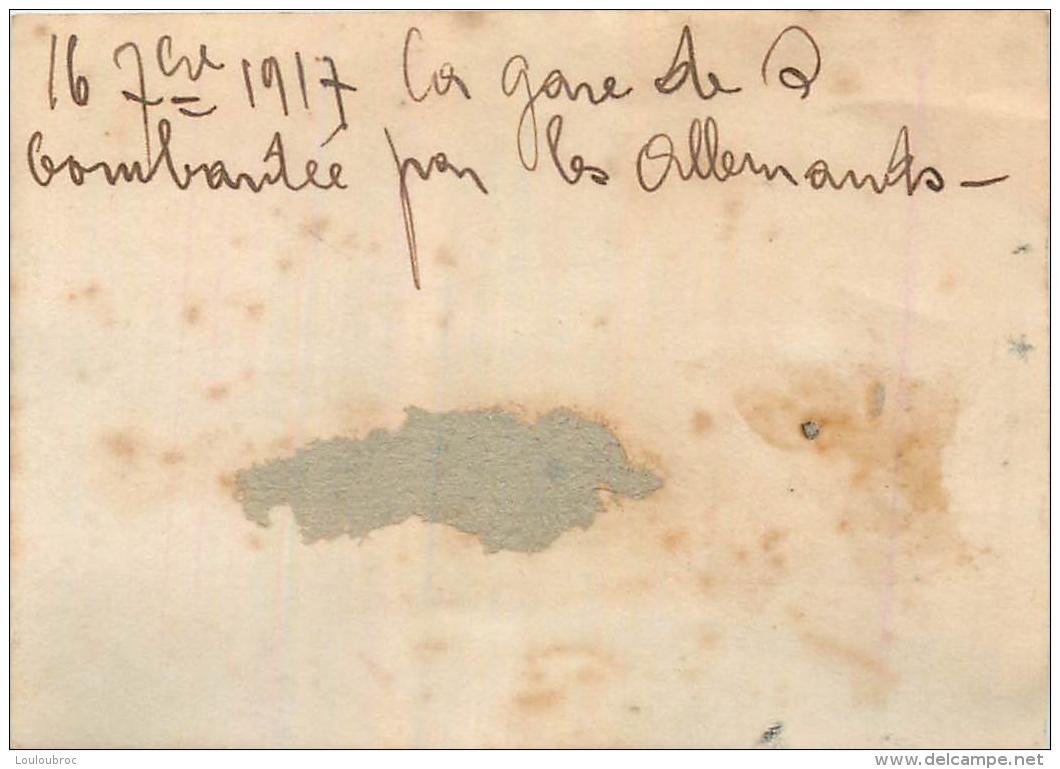 16 7bre 1917 la gare de
bombardée par les Allemands -
Louloubroc
delcampe.net